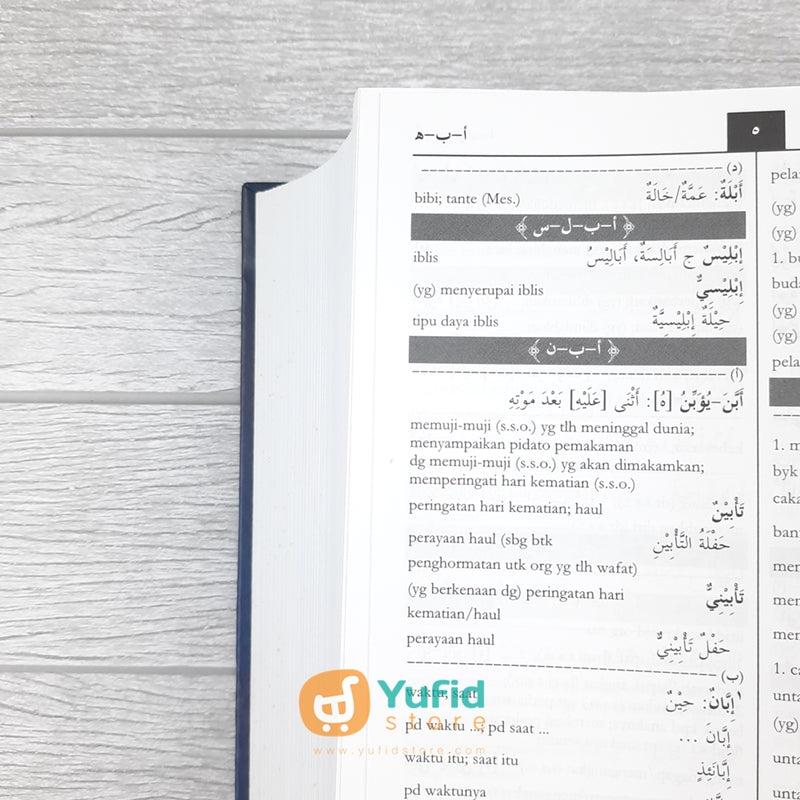 أ-ب-ه
٥
(د)
أَبْلَةٌ: عَمَّةٌ/خَالَةٌ bibi; tante (Mes.)
﴿ أ-ب-ل-س ﴾
إِبْلِيْسٌ ج أَبَالِسَةٌ، أَبَالِيْسُ iblis
إِبْلِيْسِيٌّ (yg) menyerupai iblis
حِيْلَةٌ إِبْلِيْسِيَّةٌ tipu daya iblis
﴿ أ-ب-ن ﴾
(أ)
أَبَّنَ-يُؤَبِّنُ [هُ]: أَثْنَى [عَلَيْهِ] بَعْدَ مَوْتِهِ
memuji-muji (s.s.o.) yg tlh meninggal dunia;
menyampaikan pidato pemakaman
dg memuji-muji (s.s.o.) yg akan dimakamkan;
memperingati hari kematian (s.s.o.)
تَأْبِيْنٌ peringatan hari kematian; haul
حَفْلَةُ التَّأْبِيْنِ perayaan haul (sbg btk
penghormatan utk org yg tlh wafat)
تَأْبِيْنِيٌّ (yg berkenaan dg) peringatan hari
kematian/haul
حَفْلٌ تَأْبِيْنِيٌّ perayaan haul
(ب)
١إِبَّانٌ: حِيْنٌ waktu; saat
إِبَّانَ ... pd waktu ...; pd saat ...
إِبَّانَئِذٍ waktu itu; saat itu
pd waktunya
(yg)
(yg)
1. bu
(yg)
(yg)
1. m
byk
1. ca
(yg)
Yufid
store
www.yufidstore.com